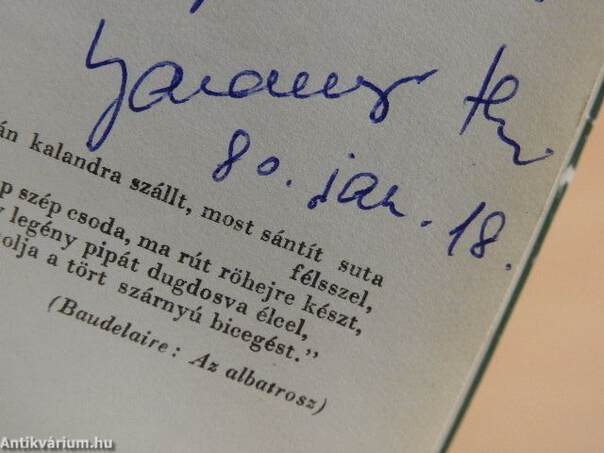 80. jan. 18.
án kalandra szállt, most sántít suta
félsszel,
p szép csoda, ma rút röhejre készt,
legény pipát dugdosva élcel,
olja a tört szárnyú bicegést."
(Baudelaire: Az albatrosz)
Antikvárium.hu